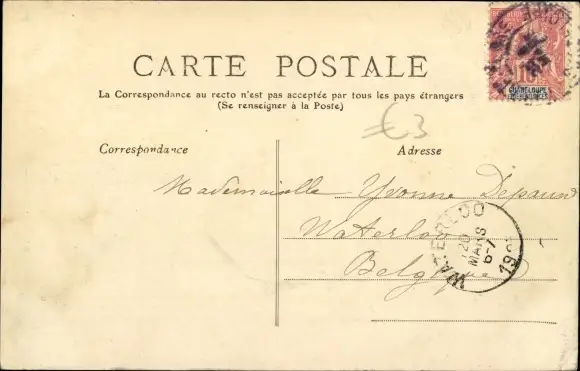 CARTE POSTALE
La Correspondance au recto n'est pas acceptée par tous les pays étrangers
(Se renseigner à la Poste)
€3
Correspondance
Adresse
Mademoiselle Yvonne
Waterloo
Belgique
WATERLOO
20
MARS
6-7
GUADELOUPE
ET DÉPENDANCES
10